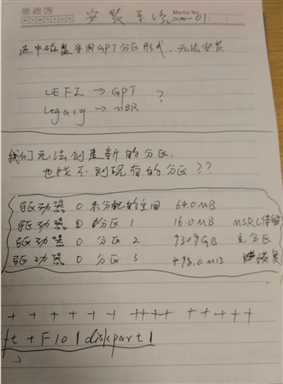 安装系统 01
选中磁盘采用GPT分区形式，无法安装
UEFI → GPT
Legacy → MBR ?
我们无法创建新的分区，
也找不到现有的分区??
驱动器 0 未分配的空间 64.0MB
驱动器 0 的分区 1 16.0MB MSR(保留)
驱动器 0 分区 2 930.9GB 主分区
驱动器 0 分区 3 498.0MB 恢复
+ + + + + + ++++ +++++
ft + F10 | diskpart |